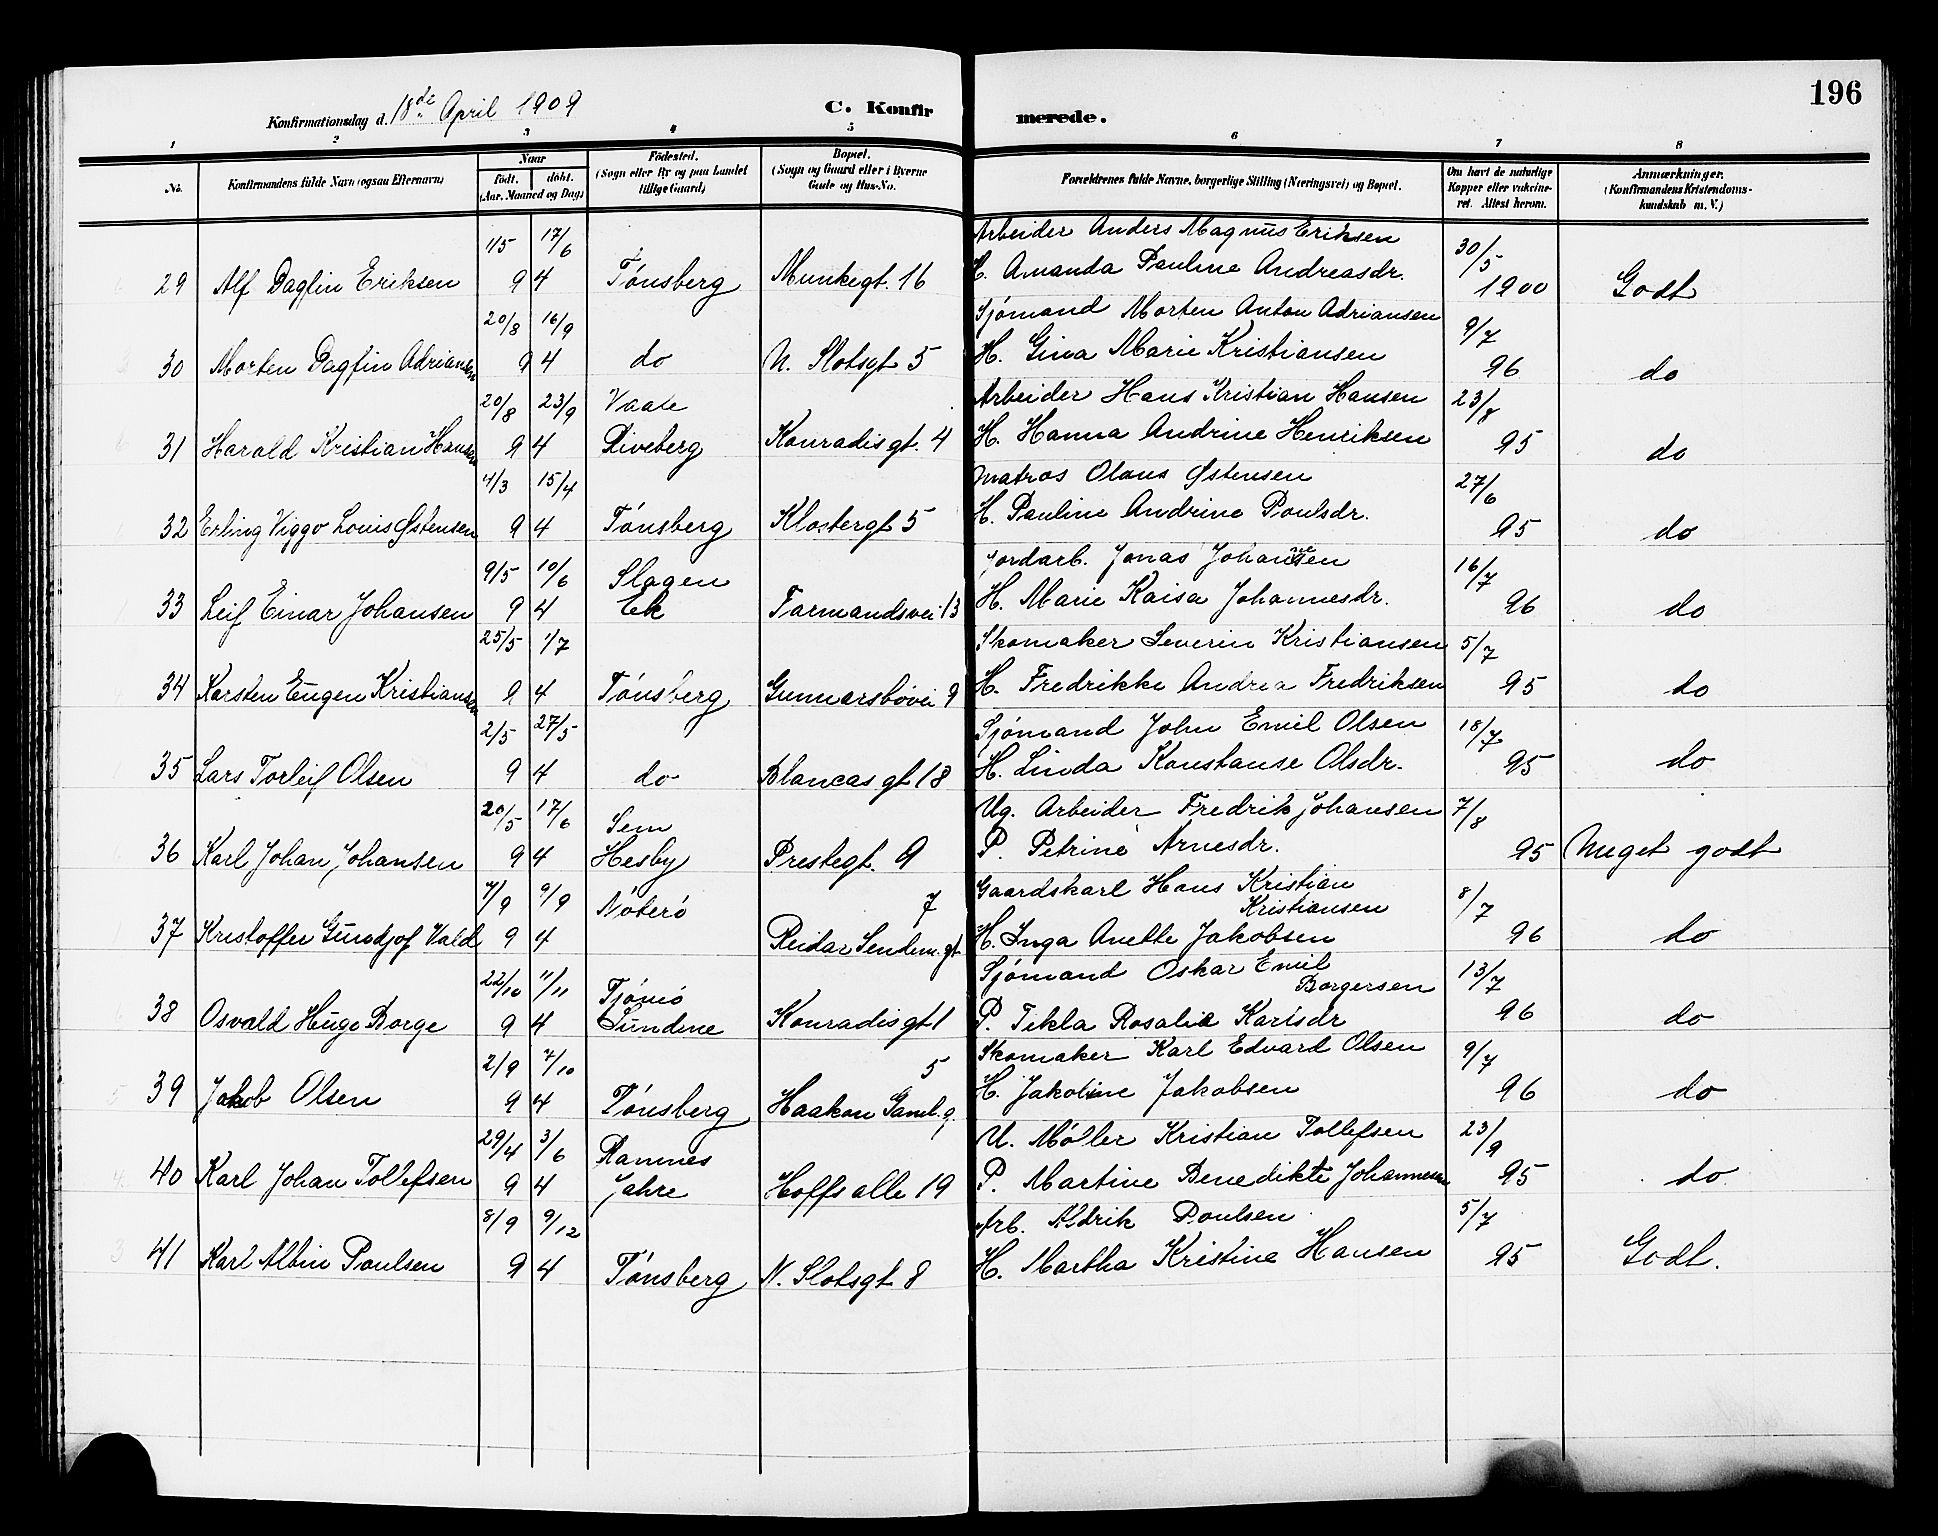 196
Konfirmationsdag d. 18de April 1909 C. Konfirmerede.
1 2 3 4 5 6 7 8
No. Konfirmandens fulde Navn (ogsaa Efternavn) Naar født. døbt. (Aar, Maaned og Dag) Fødested. (Sogn eller By og paa Landet tillige Gaard) Bopæl. (Sogn og Gaard eller i Byerne Gade og Hus-No. Forældrenes fulde Navne, borgerlige Stilling (Næringsvei) og Bopæl. Om havt de naturlige Kopper eller vakcineret. Attest herom. Anmærkninger. (Konfirmandens Kristendomskundskab m. V.)
1/5 17/6 Arbeider Anders Magnus Eriksen 30/5
29 Alf Dagfin Eriksen 94 Tønsberg Munkegt. 16 H. Amanda Pauline Andreasdr. 1900 Godt
20/8 16/9 Sjømand Morten Anton Adriansen 9/7
30 Morten Dagfin Adriansen 94 do N. Slotsgt 5 H. Gina Marie Kristiansen 96 do
20/8 23/9 Vaale Arbeider Hans Kristian Hansen 23/8
31 Harald Kristian Hansen 94 Riveberg Konradisgt. 4 H. Hanna Andrine Henriksen 95 do
4/3 15/4 Matros Olaus Østensen 27/6
32 Erling Viggo Louis Østensen 94 Tønsberg Klostergt 5 H. Pauline Andrine Poulsdr. 95 do
9/5 10/6 Slagen Jordarb. Jonas Johansen 16/7
33 Leif Einar Johansen 94 Ek Farmandsvei 13 H. Marie Kaisa Johannesdr. 96 do
25/5 1/7 Skomaker Severin Kristiansen 5/7
34 Karsten Eugen Kristiansen 94 Tønsberg Gunnarsbøvei 9 H. Fredrikke Andrea Fredriksen 95 do
2/5 27/5 Sjømand John Emil Olsen 18/7
35 Lars Torleif Olsen 94 do Blancasgt 18 H. Linda Konstanse Olsdr. 95 do
20/5 17/6 Sem Ug. Arbeider Fredrik Johansen 7/8
36 Karl Johan Johansen 94 Hesby Prestegt. 9 P. Petrine Arnesdr. 95 Meget godt
7/9 9/9 Nøterø 7 Gaardskarl Hans Kristian Kristiansen 8/7
37 Kristoffer Gundjof Vald 94 Reidar Sendem. gt H. Inga Anette Jakobsen 96 do
22/10 11/11 Tjømø Sjømand Oskar Emil Borgersen 13/7
38 Osvald Hugo Borge 94 Sundene Konradisgt 1 P. Tekla Rosalie Karlsdr 96 do
2/9 7/10 5 Skomaker Karl Edvard Olsen 9/7
39 Jakob Olsen 94 Tønsberg Haakon Gaml. g. H. Jakobine Jakobsen 96 do
29/4 3/6 Ramnes U. Møller Kristian Tollefsen 23/9
40 Karl Johan Tollefsen 94 Jahre Hoffs alle 19 P. Martine Benedikte Johannesen 95 do
8/9 9/12 Arb. Aldrik Poulsen 5/7
41 Karl Albin Poulsen 94 Tønsberg N. Slotsgt 8 H. Martha Kristine Hansen 95 Godt.